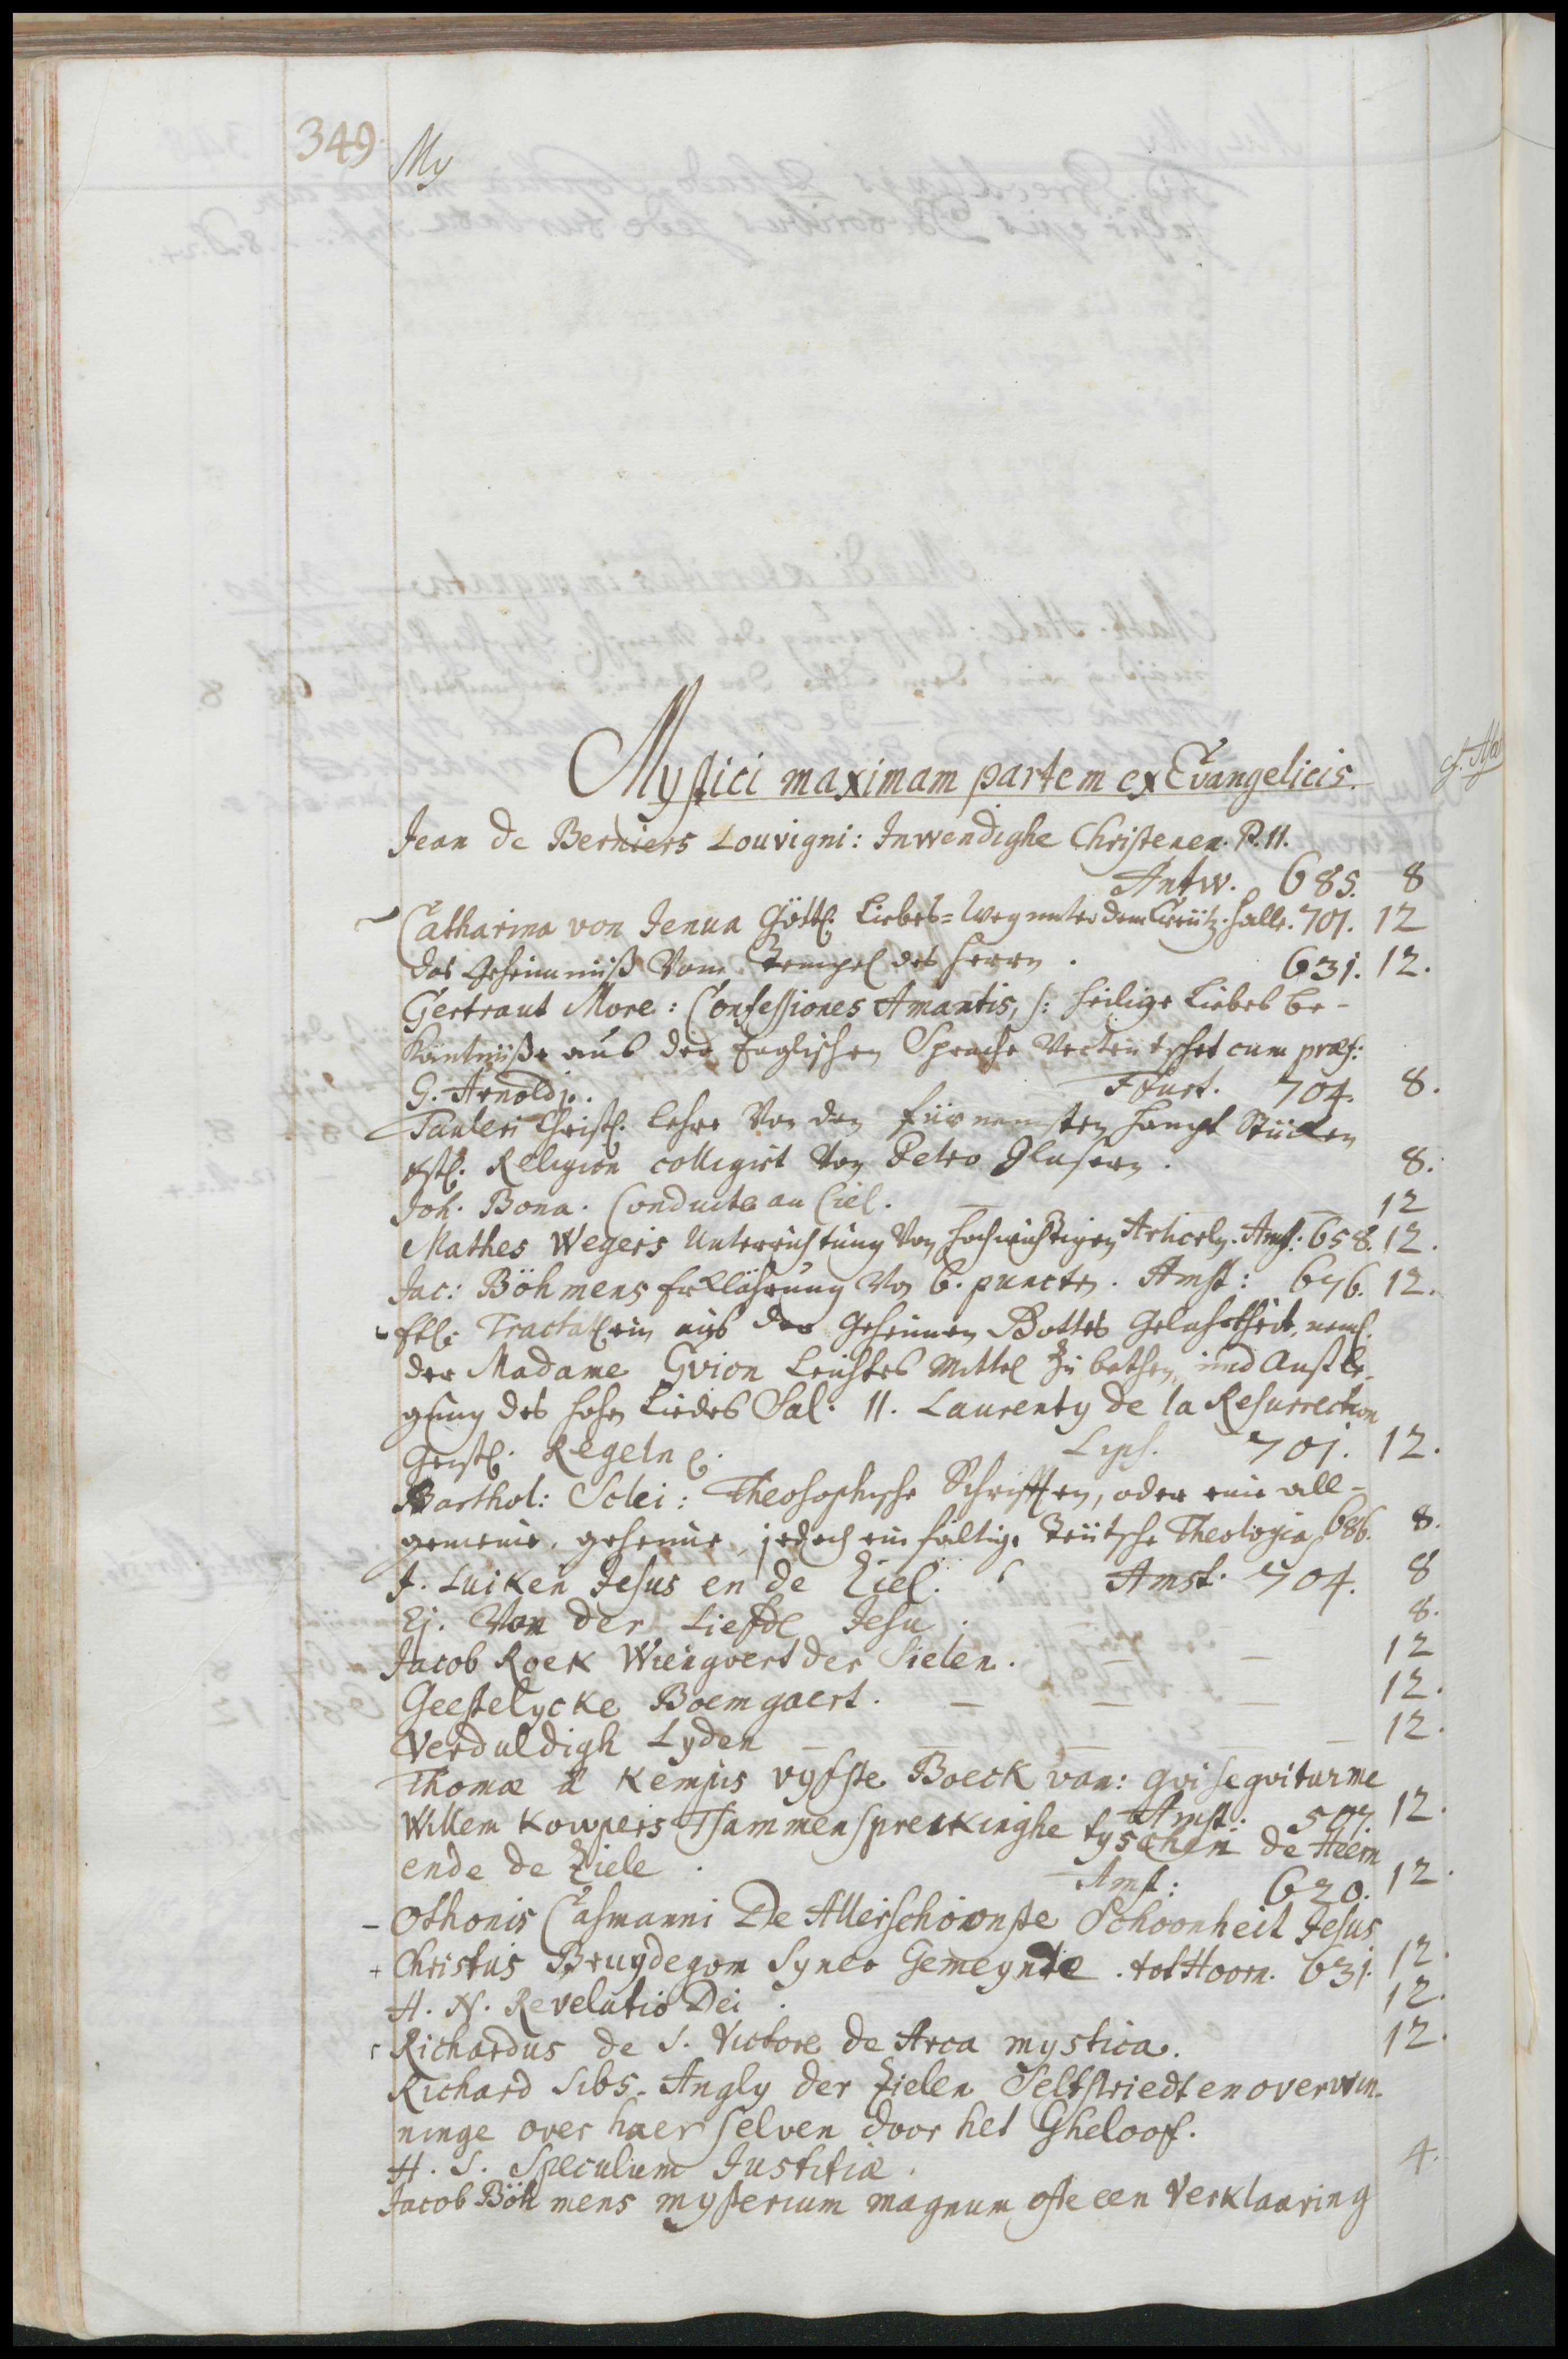 349
My
Mystici maximam partem ex Evangelicis.
Jean de Berniers Louvigni: Inwendighe Christenen. P. II.
Antw. 685. 8
Catharina von Jenua Göttl. Liebes-Weg unter dem Creütz. Halle. 701. 12
das Geheimniß Vom Tempel des Herrn. 631. 12.
Gertraut More: Confessiones Amantis, /: heilige Liebes be-
käntnüße aus der Englischen Sprache Verteutschet cum præf:
G. Arnoldj. Ffurt. 704. 8.
Tauleri Christl. Lehre Von den fürnemsten Haupt Stücken
Religion colligirt Von Petro Glasern. 8.
Joh. Bona. Conducte au Ciel. — — 12
Mathes Wegers Unterrichtung Von hochwichtigen Articeln. Amst: 658. 12.
Jac: Böhmens Erklährung Von 6. puncten. Amst: 676. 12.
Etl: Tractätlein aus der Geheimen Gottes Gelahrtheit, neml.
der Madame Gvion Leichtes Mittel zu bethen, und Außle-
gung des hohen Liedes Sal. II. Laurenty de la Resurrection
Geistl. Regeln. Lips. 701. 12.
Barthol: Sclei: Theosophische Schrifften, oder eine all-
gemeine, geheime, jedoch einfältige Teütsche Theologia, 686. 8.
J. Luiken Jesus en de Ziel. Amst. 704. 8
Ej. Van der Liefde Jesu. 8.
Jacob Roek Wiengvert der Sielen. — — 12
Geestelycke Boemgaert. — — — 12.
Verduldigh Lyden — — — — 12.
Thomæ à Kempis vyfste Boeck van: qvi seqvitur me
Amst: 507. 12.
Willem Kowpers Tsammensprekinghe tyschen de Heern
ende de Ziele. Amst: 620. 12.
Othonis Casmanni De Allerschoonste Schoonheit Jesus
Christus Bruydegom Syner Gemeynte. tot Hoorn. 631. 12.
H. N. Revelatio Dei. 12.
Richardus de S. Victore de Arca mystica. 12.
Richard Sibs. Angly der Zielen Selfstriedt en overwin-
ninge over haer selven door het Gheloof.
H. S. Speculum Justitiæ. 4.
Jacob Böhmens mysterium magnum ofte een Verklaaring